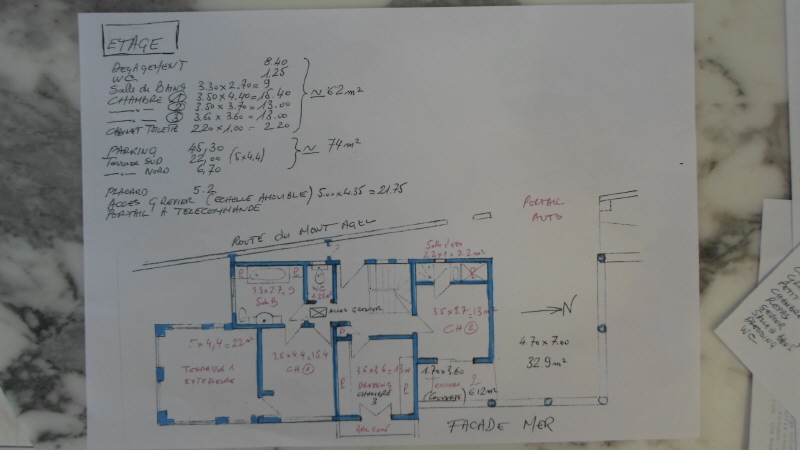 ETAGE
DEGAGEMENT 8.40
WC 1.25
Salle de BAINS 3.30 x 2.70 = 9
CHAMBRE 1 3.50 x 4.40 = 15.40
—"— 2 3.50 x 3.70 = 13.00
—"— 3 3.60 x 3.60 = 13.00
CABINET TOILETTE 2.20 x 1.00 = 2.20
≃ 62 m²
PARKING 45,30
TERRASSE SUD 22,00 (5x4.4)
—"— NORD 6,70
≃ 74 m²
PLACARD 5.2
ACCES GRENIER (ECHELLE AMOVIBLE) 5.00 x 4.35 = 21.75
PORTAIL A TELECOMMANDE
PORTAIL
AUTO
ROUTE du MONT AGEL
Salle d'eau
2.2x1 = 2.2 m²
P
P
3.3x2.7 = 9
Salle B
WC
1.25 m²
P
ACCES GRENIER
3.5x3.7 = 13 m²
CH 2
N
4.70 x 7.00
32.9 m²
5 x 4,4 = 22 m²
TERRASSE 1
EXTERIEURE
3.5x4.4 = 15.4
CH 1
P
3.6x3.6 = 13 m²
DRESSING
CHAMBRE
3
P
P
1.70 x 3.60
TERRASSE 2
6.12 m²
BALCONS
FACADE MER
WC